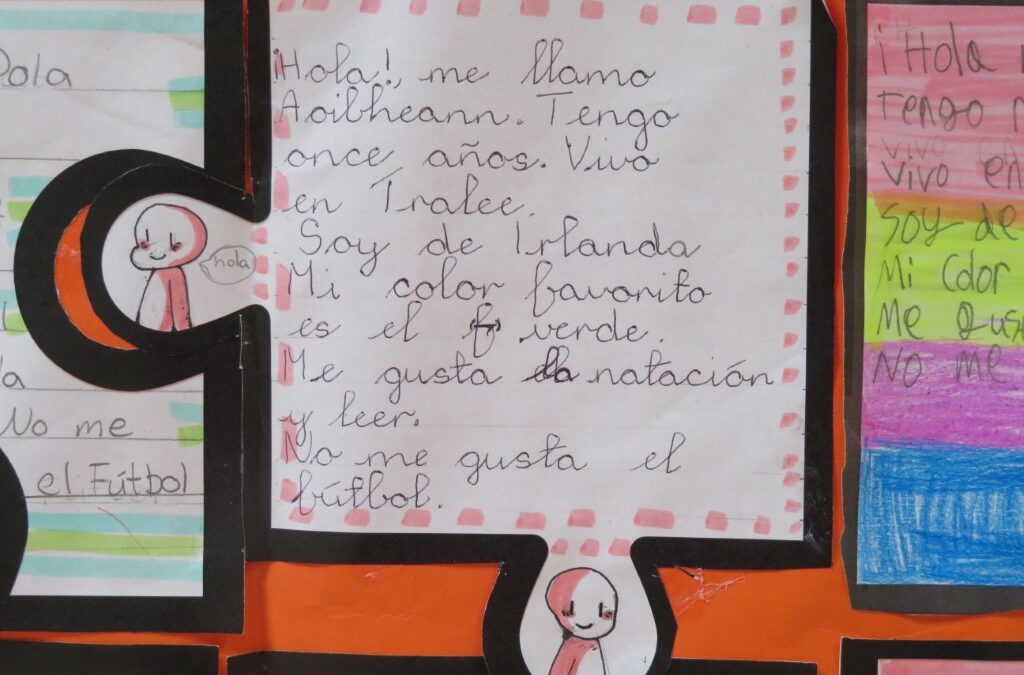 Pola
No me
el Fútbol
¡Hola!, me llamo
Aoibheann. Tengo
once años. Vivo
en Tralee.
Soy de Irlanda
Mi color favorito
es el verde.
Me gusta la natación
y leer.
No me gusta el
fútbol.
hola
¡Hola
Tengo
Vivo en
Soy de
Mi Color
Me gus
No me